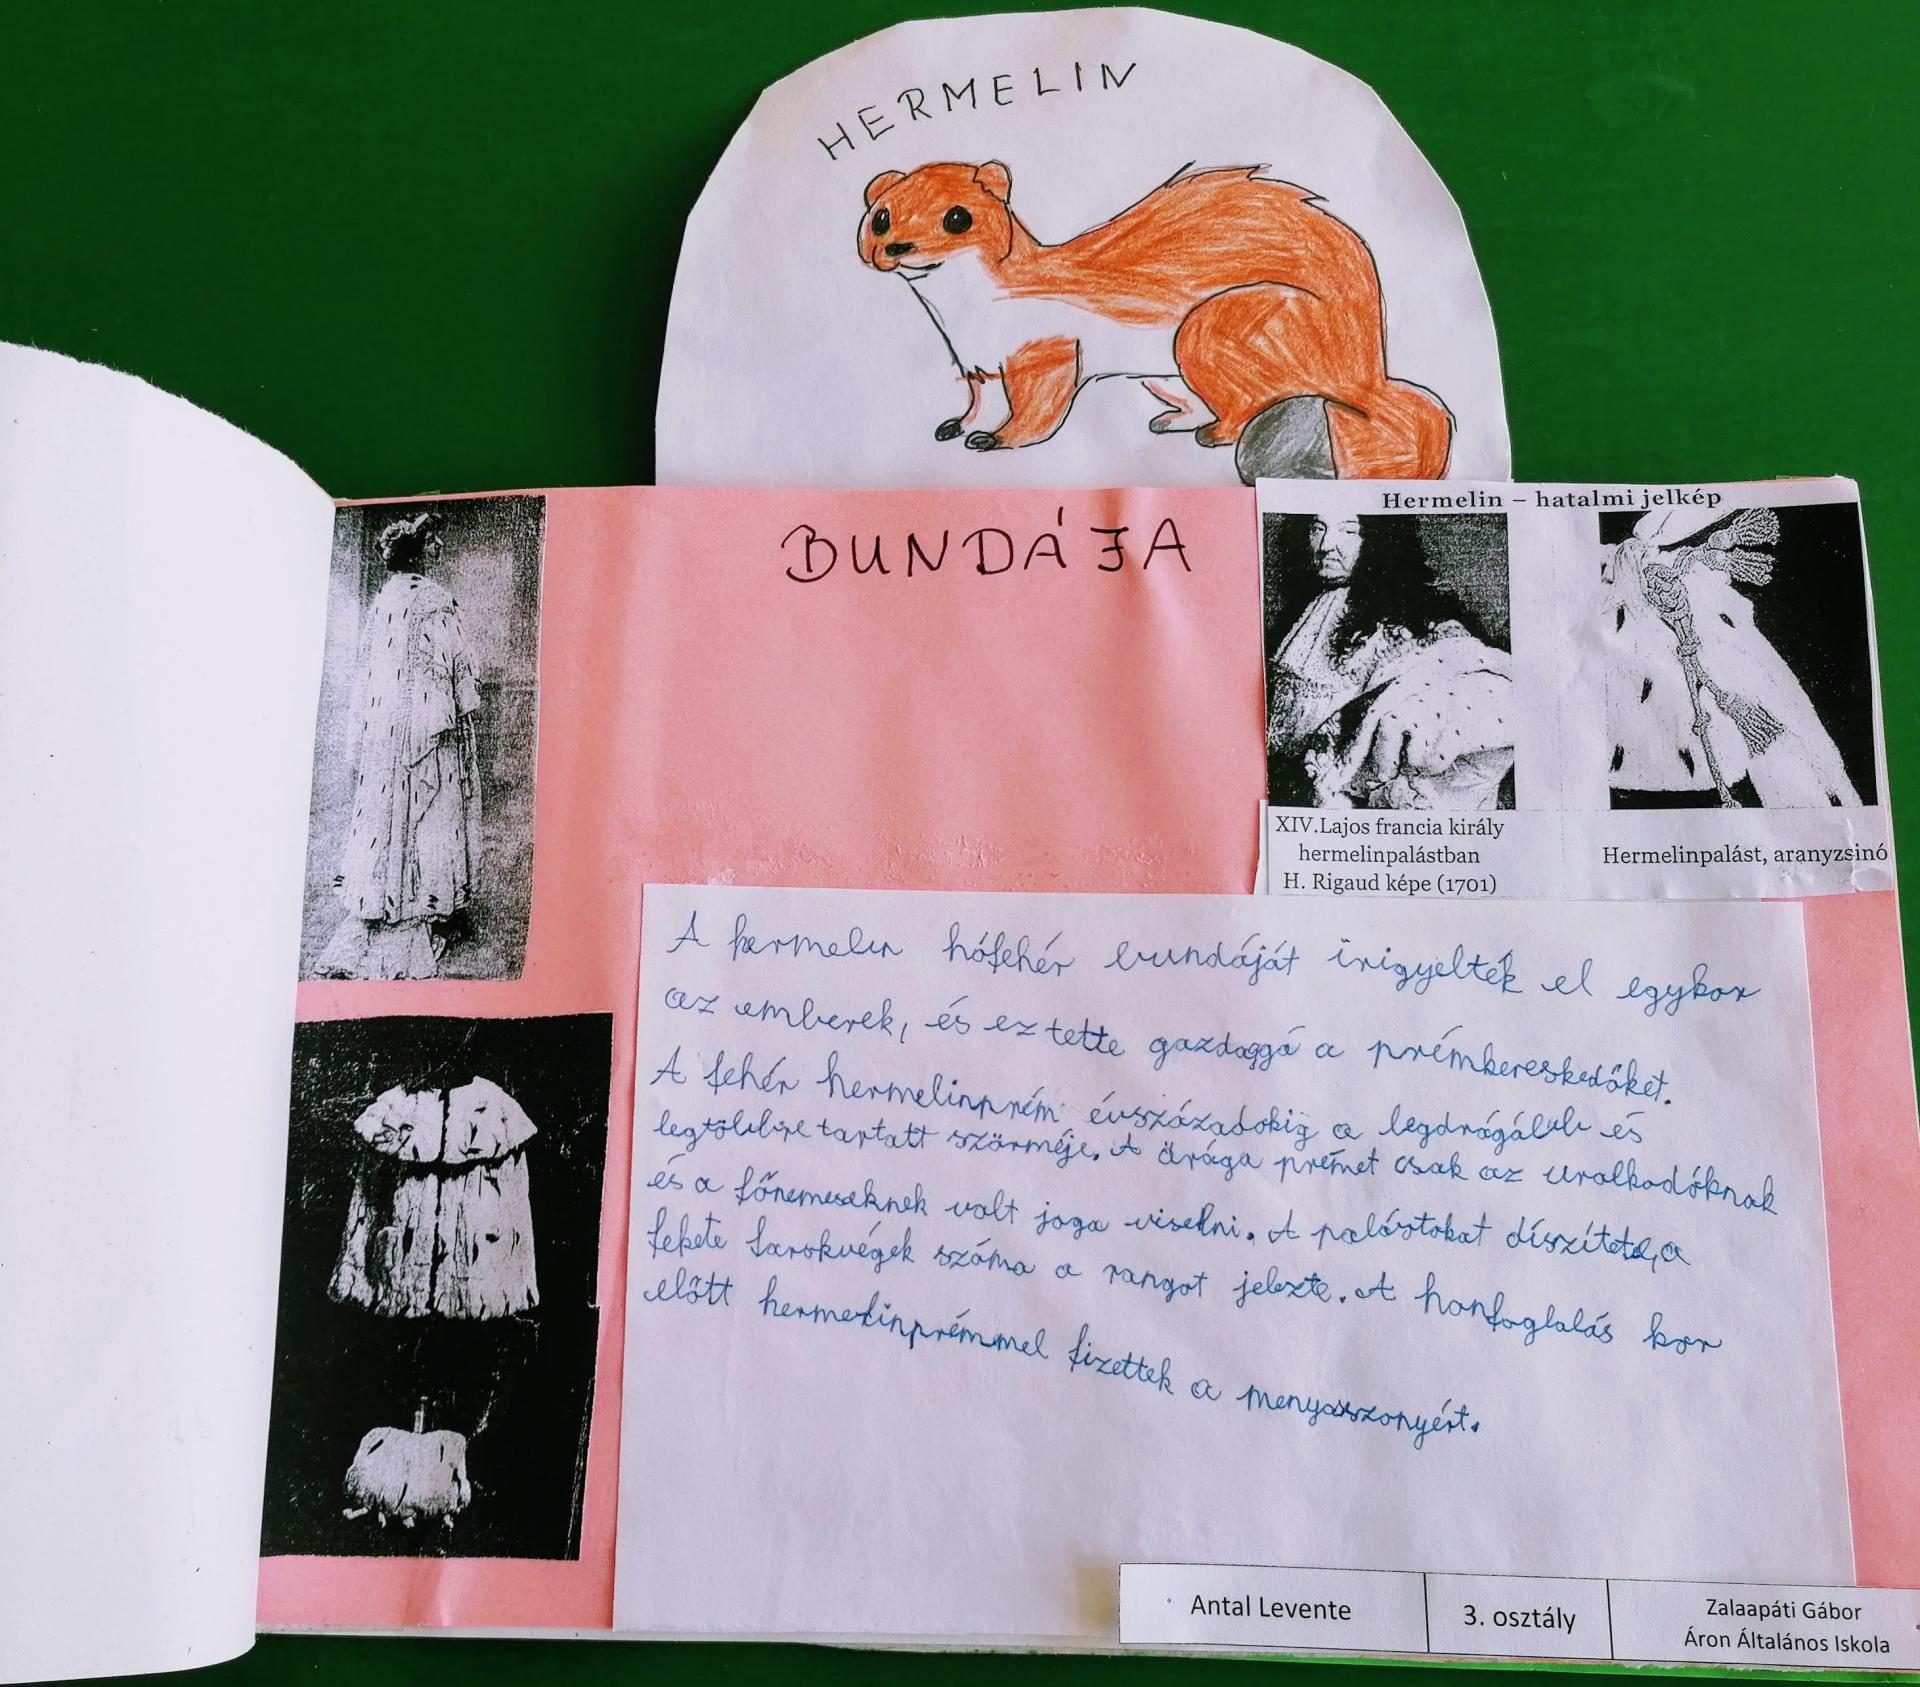 HERMELIN
BUNDÁJA
Hermelin – hatalmi jelkép
XIV.Lajos francia király
hermelinpalástban
H. Rigaud képe (1701)
Hermelinpalást, aranyzsinó
A hermelin hófehér bundáját irigyelték el egykor
az emberek, és ez tette gazdaggá a prémkereskedőket.
A fehér hermelinprém évszázadokig a legdrágább és
legtöbbre tartatt szörméje. A drága prémet csak az uralkodóknak
és a főnemeseknek volt joga viselni. A palástokat díszítető, a
fekete farokvégek száma a rangot jelezte. A honfoglalás kor
előtt hermelinprémmel fizettek a menyasszonyért.
Antal Levente
3. osztály
Zalaapáti Gábor
Áron Általános Iskola